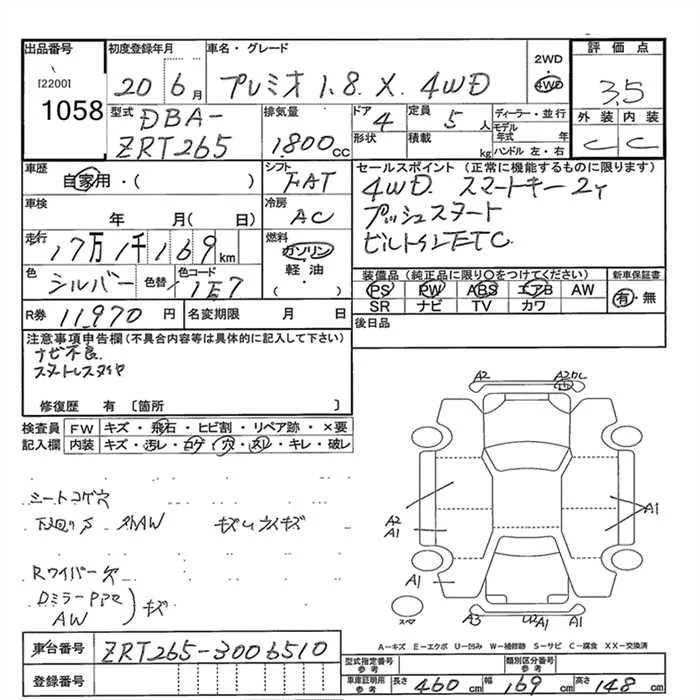 出品番号
[2200]
1058
初度登録年月
20年6月
車名・グレード
プレミオ 1.8 X 4WD
2WD
4WD
評価点
3.5
外装 内装
C C
型式
DBA-
ZRT265
排気量
1800cc
ドア
4
形状
定員
5人
積載
kg
ディーラー・並行
モデル年式 年
ハンドル 左・右
車歴
自家用・( )
シフト
FAT
車検
年 月( 日)
冷房
AC
走行
17万1千169km
燃料
ガソリン
軽油
( )
色
シルバー
色替
色コード
1E7
R券
11,970円
名変期限 月 日
セールスポイント(正常に機能するものに限ります)
4WD スマートキー2ケ
プッシュスタート
ビルトインETC
装備品(純正品に限り○をつけてください)
PS PW ABS エアB AW
SR ナビ TV カワ
新車保証書
有・無
後日品
注意事項申告欄(不具合内容等は具体的に記入して下さい)
ナビ不良
スタットレスタイヤ
修復歴 有〔箇所 〕
検査員
記入欄
FW キズ・飛石・ヒビ割・リペア跡・×要
内装 キズ・汚レ・コゲ・穴・スレ・キレ・破レ
シートコゲ穴
下廻りサ 外AW キズ
Rワイパー欠
Dミラー
AW
キズ
A2
A2
A1
A2
A1
A1
A3
A1
A1
スペア
A-キズ E-エクボ U-凹み W-補修跡 S-サビ C-腐食 XX-交換済
車台番号
ZRT265-3006510
登録番号
型式指定番号 参考
類別区分番号 参考
車庫証明用 参考
長さ 460cm 幅 169cm 高さ 148cm